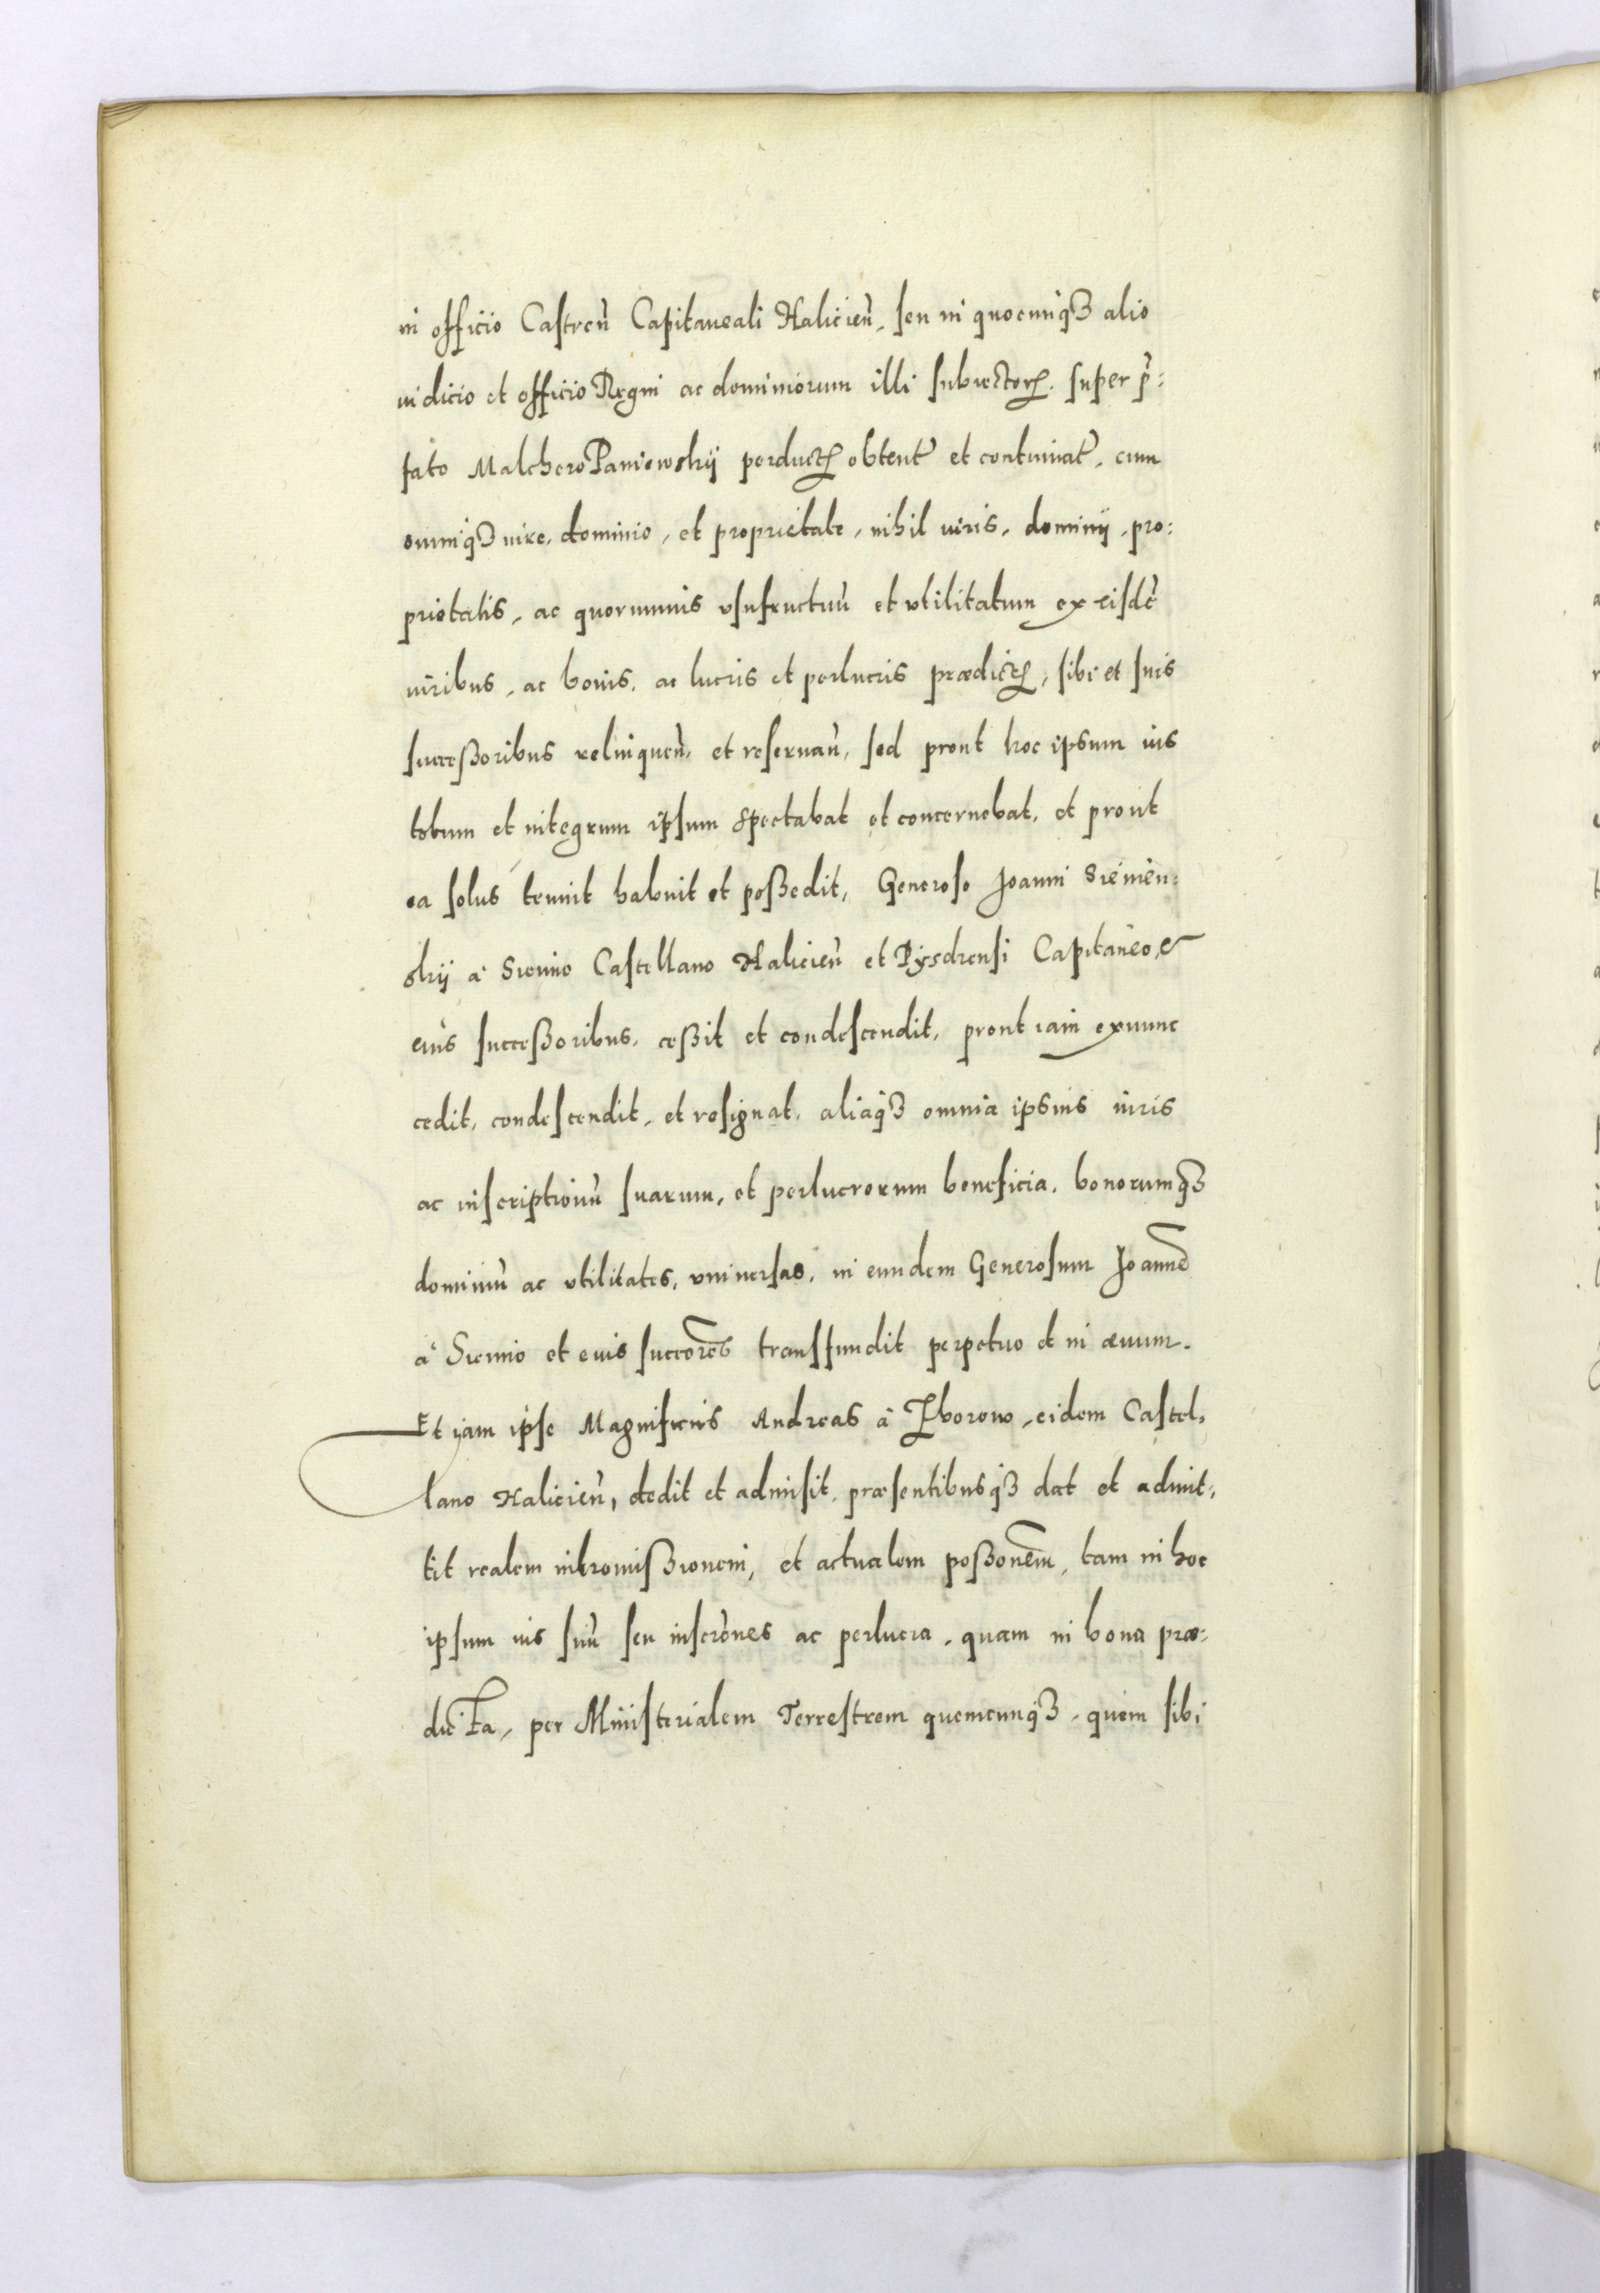 in officio Castren̄ Capitaneali Halicien̄, seu in quocunqꝫ alio
iudicio et officio Regni ac dominiorum illi subiectorꝝ, super p̄:
fato Malchero Paniowskij perductꝝ obtent̄ et continuat̄, cum
omniqꝫ iure, dominio, et proprietate, nihil iuris, dominij, pro:
prietatis, ac quorumuis vsufructuū et vtilitatum ex eisdē
iuribus, ac bonis, ac lucris et perlucris prædictꝝ, sibi et suis
successoribus relinquen̄, et reseruan̄, sed prout hoc ipsum ius
totum et integrum ipsum spectabat et concernebat, et prout
ea solus tenuit habuit et possedit, Generoso Joanni Sienien:
skij à Sienno Castellano Halicien̄ et Pysdrensi Capitaneo, &
eius successoribus, cessit et condescendit, prout iam exnunc
cedit, condescendit, et resignat, aliaqꝫ omnia ipsius iuris
ac inscriptionū suarum, et perlucrorum beneficia, bonorumqꝫ
dominiū ac vtilitates, vniuersas, in eundem Generosum Joannē
à Sienno et euis succōres transfundit perpetuo et in æuum.
Et iam ipse Magnificus Andreas à Zborow, eidem Castel,
lano Halicien̄, dedit et admisit, præsentibusqꝫ dat et admit,
tit realem intromissionem, et actualem possōnem, tam in hoc
ipsum ius suū seu inscrōnes ac perlucra, quam in bona præ:
dicta, per Ministerialem Terrestrem quemcunqꝫ, quem sibi